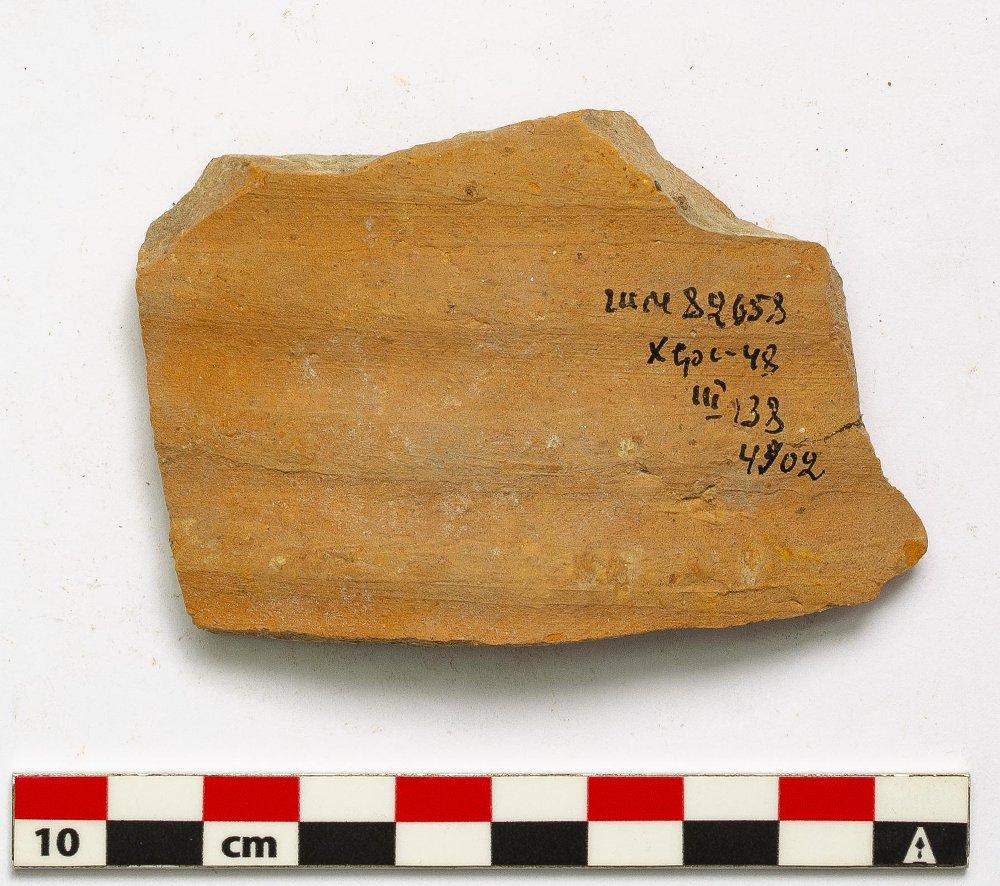 ШМ 82653
Херс-48
III 138
4902
10 cm